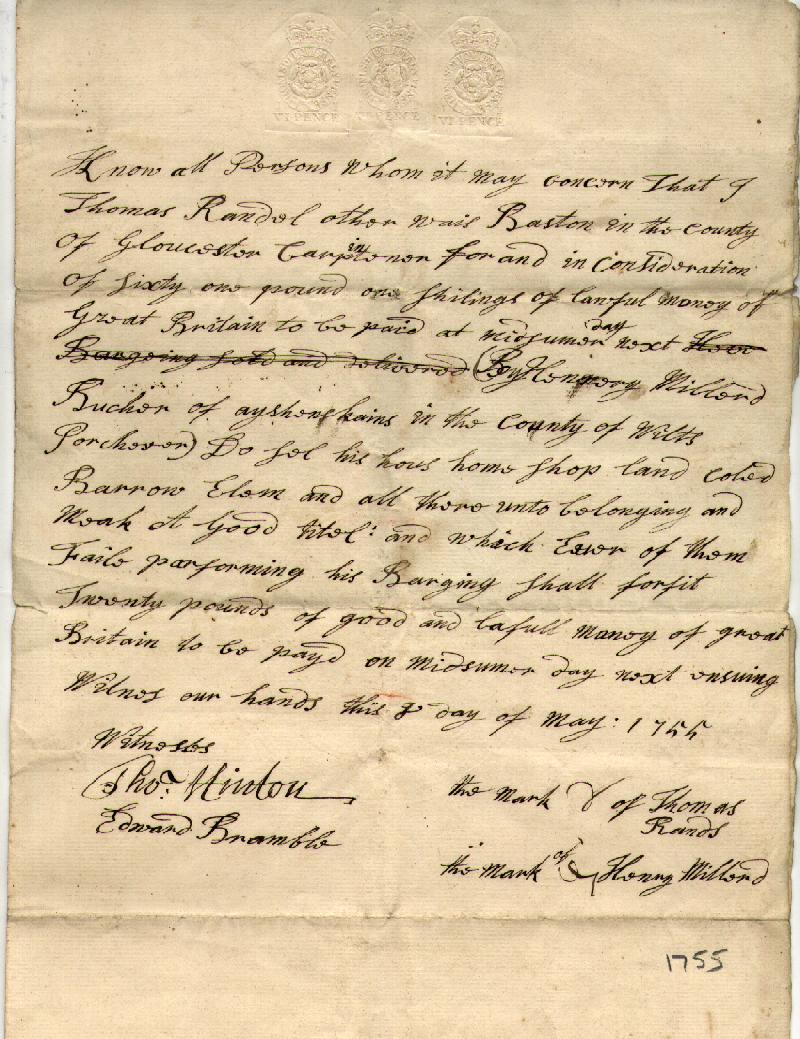 VI PENCE VI PENCE VI PENCE
Know all Persons Whom it may concern That I
Thomas Randel other wais Baston in the county
of Gloucester Carpintener for and in Consideration
of sixty one pound one shilings of lawful money of
Great Britain to be paid at midsumer day next
Bargeing sold and delivered By Hennery Millerd
Bucher of ayshenkains in the County of Wilts
Porcheser) Do sel his hous home shop land coled
Barrow Elem and all there unto belonging and
Meak A Good titel: and which Ever of them
Faile parforming his Barging shall forfit
Twenty pounds of good and lafull money of great
Britain to be payd on midsumer day next ensuing
Witnes our hands this 8 day of May: 1755
Witnesses
Tho.s Hinton
Edward Bramble
the mark of Thomas
Rands
the mark of Henry Millerd
1755